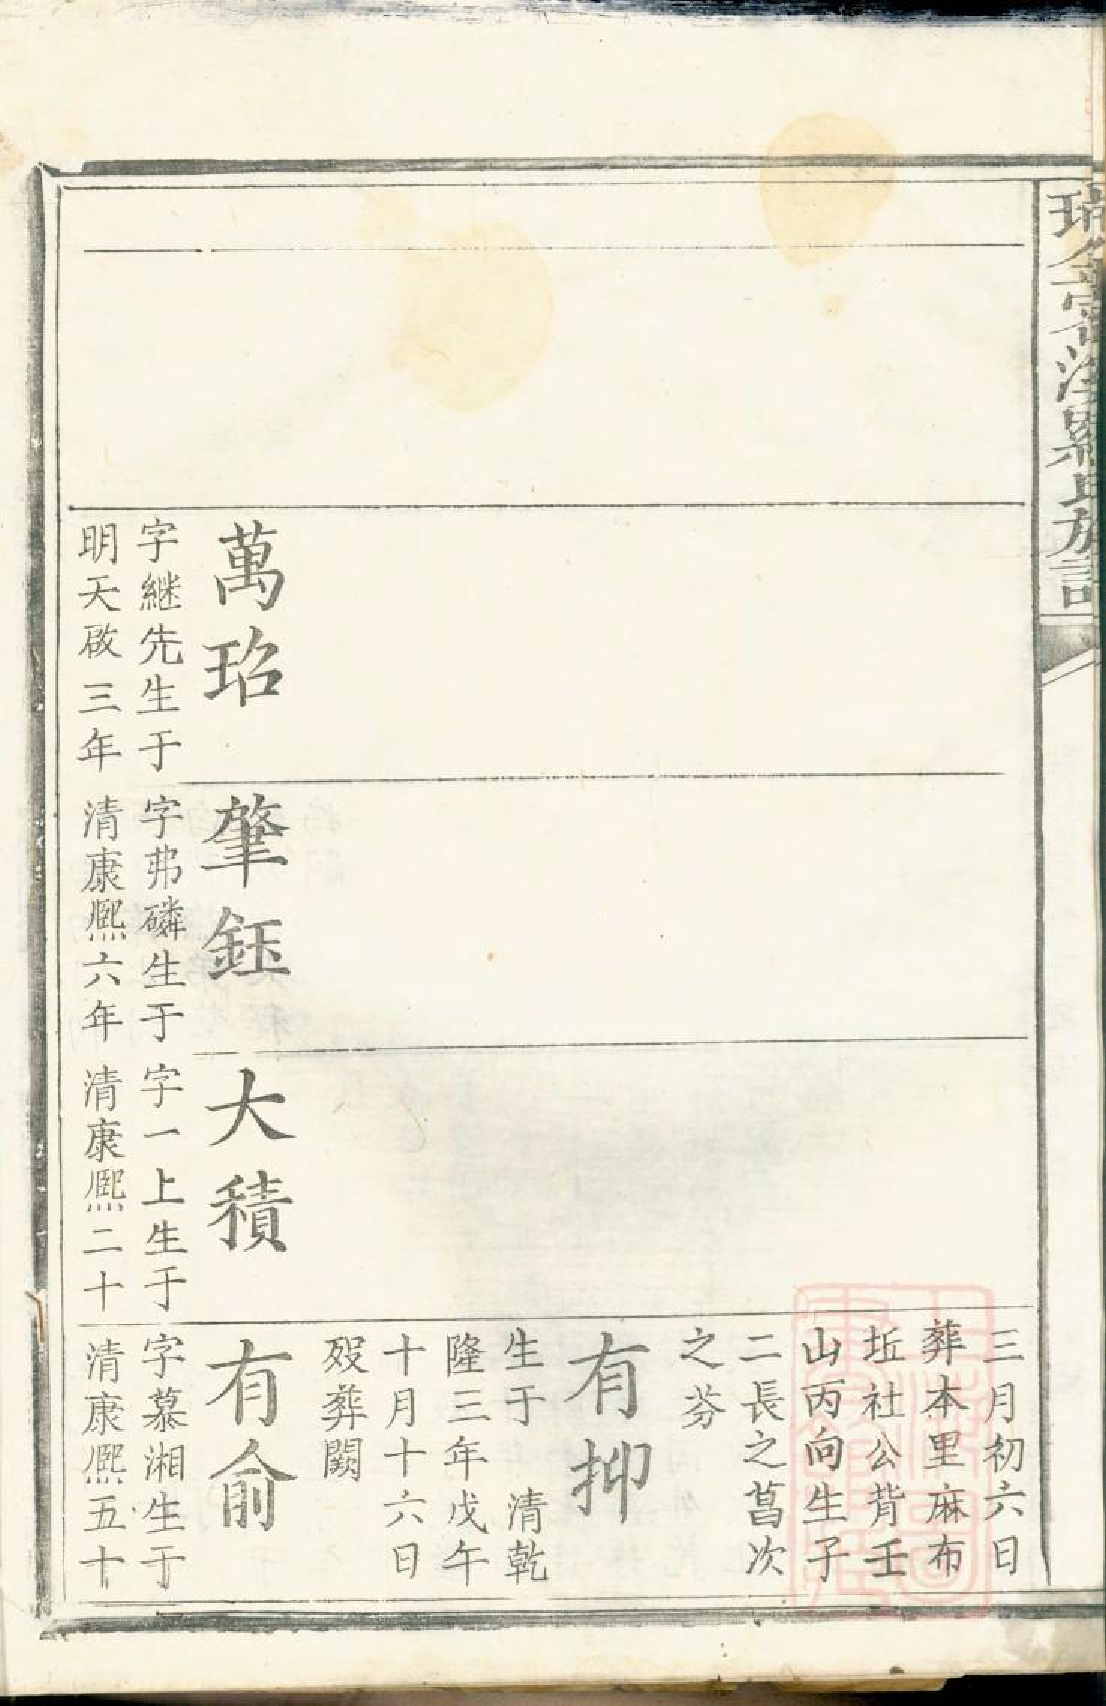 瑞金密溪羅氏族譜
萬玿
字継先生于
明天啟三年
肇鈺
字弗磷生于
清康熈六年
大積
字一上生于
清康熈二十
三月初六日
葬本里麻布
坵社公背壬
山丙向生子
二長之菖次
之芬
有抑
生于　清乾
隆三年戊午
十月十六日
殁葬闕
有俞
字慕湘生于
清康熈五十